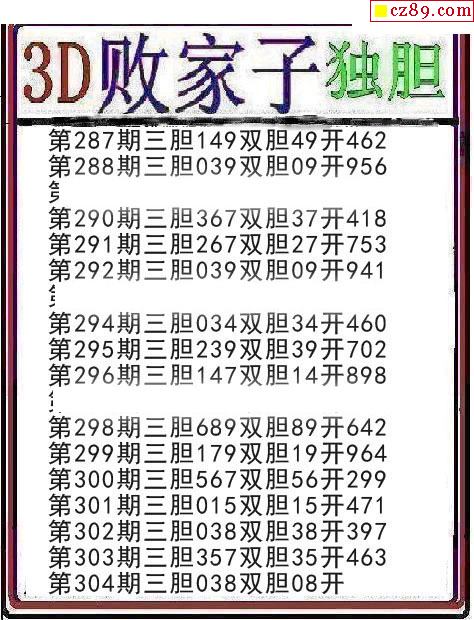 cz89.com
3D败家子独胆
第287期三胆149双胆49开462
第288期三胆039双胆09开956
第290期三胆367双胆37开418
第291期三胆267双胆27开753
第292期三胆039双胆09开941
第294期三胆034双胆34开460
第295期三胆239双胆39开702
第296期三胆147双胆14开898
第298期三胆689双胆89开642
第299期三胆179双胆19开964
第300期三胆567双胆56开299
第301期三胆015双胆15开471
第302期三胆038双胆38开397
第303期三胆357双胆35开463
第304期三胆038双胆08开